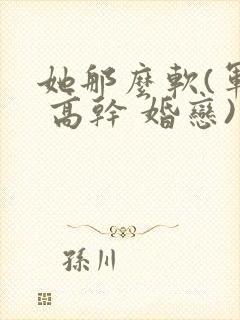 她那麼軟(軍
高幹 婚戀)
孫川